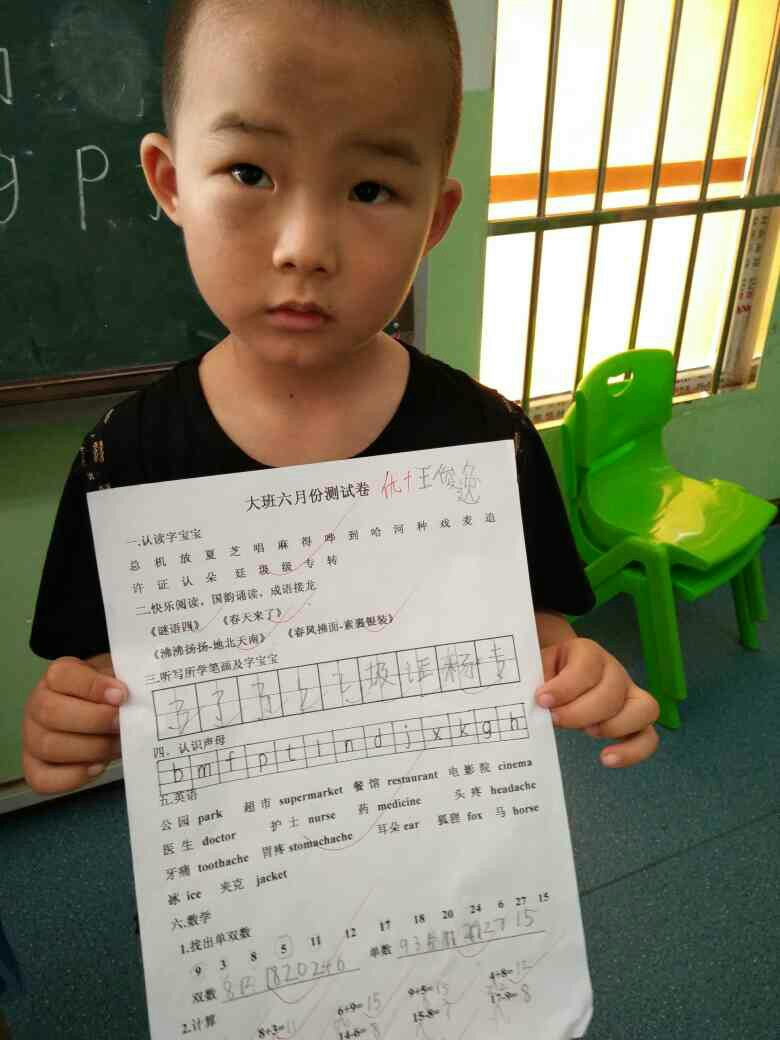 g p
大班六月份测试卷 优+ 王俊逸
一.认读字宝宝
总 机 放 夏 芝 唱 麻 得 哗 到 哈 河 种 戏 麦 追
许 证 认 朵 廷 圾 级 专 转
二.快乐阅读，国韵诵读，成语接龙
《谜语四》 《春天来了》
《沸沸扬扬-地北天南》 《春风拂面-素裹银装》
三.听写所学笔画及字宝宝
圾 证 杨 专
四．认识声母
b m f p t l n d j x k g h
五.英语
公园 park 超市 supermarket 餐馆 restaurant 电影院 cinema
医生 doctor 护士 nurse 药 medicine 头疼 headache
牙痛 toothache 胃疼 stomachache 耳朵 ear 狐狸 fox 马 horse
冰 ice 夹克 jacket
六.数学
1.找出单双数
9 3 8 5 11 12 17 18 20 24 6 27 15
双数 8 12 18 20 24 6 单数 9 3 27 15
2.计算
8+3=11 6+9=15 9+5=15 4+8=12
14-6=8 15-8=7 17-9=8